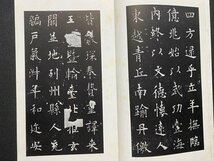 四方逮乎立年撫臨
億兆始以武功壹海
內終以文德懷遠人
東越青丘南踰丹徼
皆獻琛奉贄重譯來
王西暨輪臺北拒玄
闕並地列州縣人充
編戶氣淑年和邇安